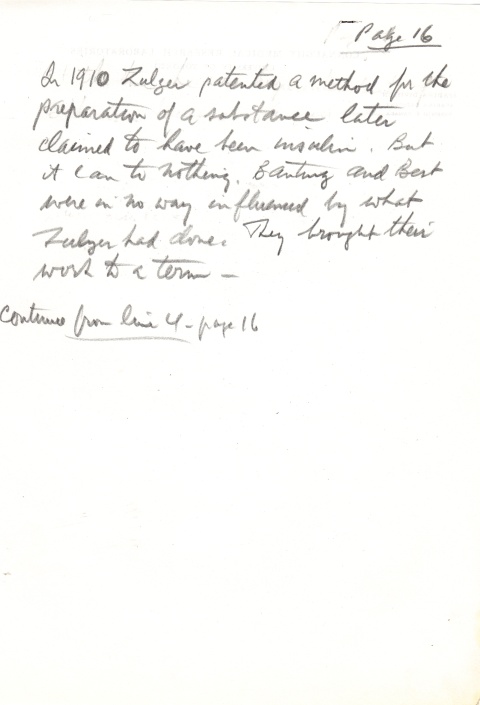 Page 16
In 1910 Zulzer patented a method for the
preparation of a substance later
claimed to have been insulin. But
it cam to nothing. Banting and Best
were in no way influenced by what
Zulzer had done. They brought their
work to a term —
Continue from line 4 - page 16